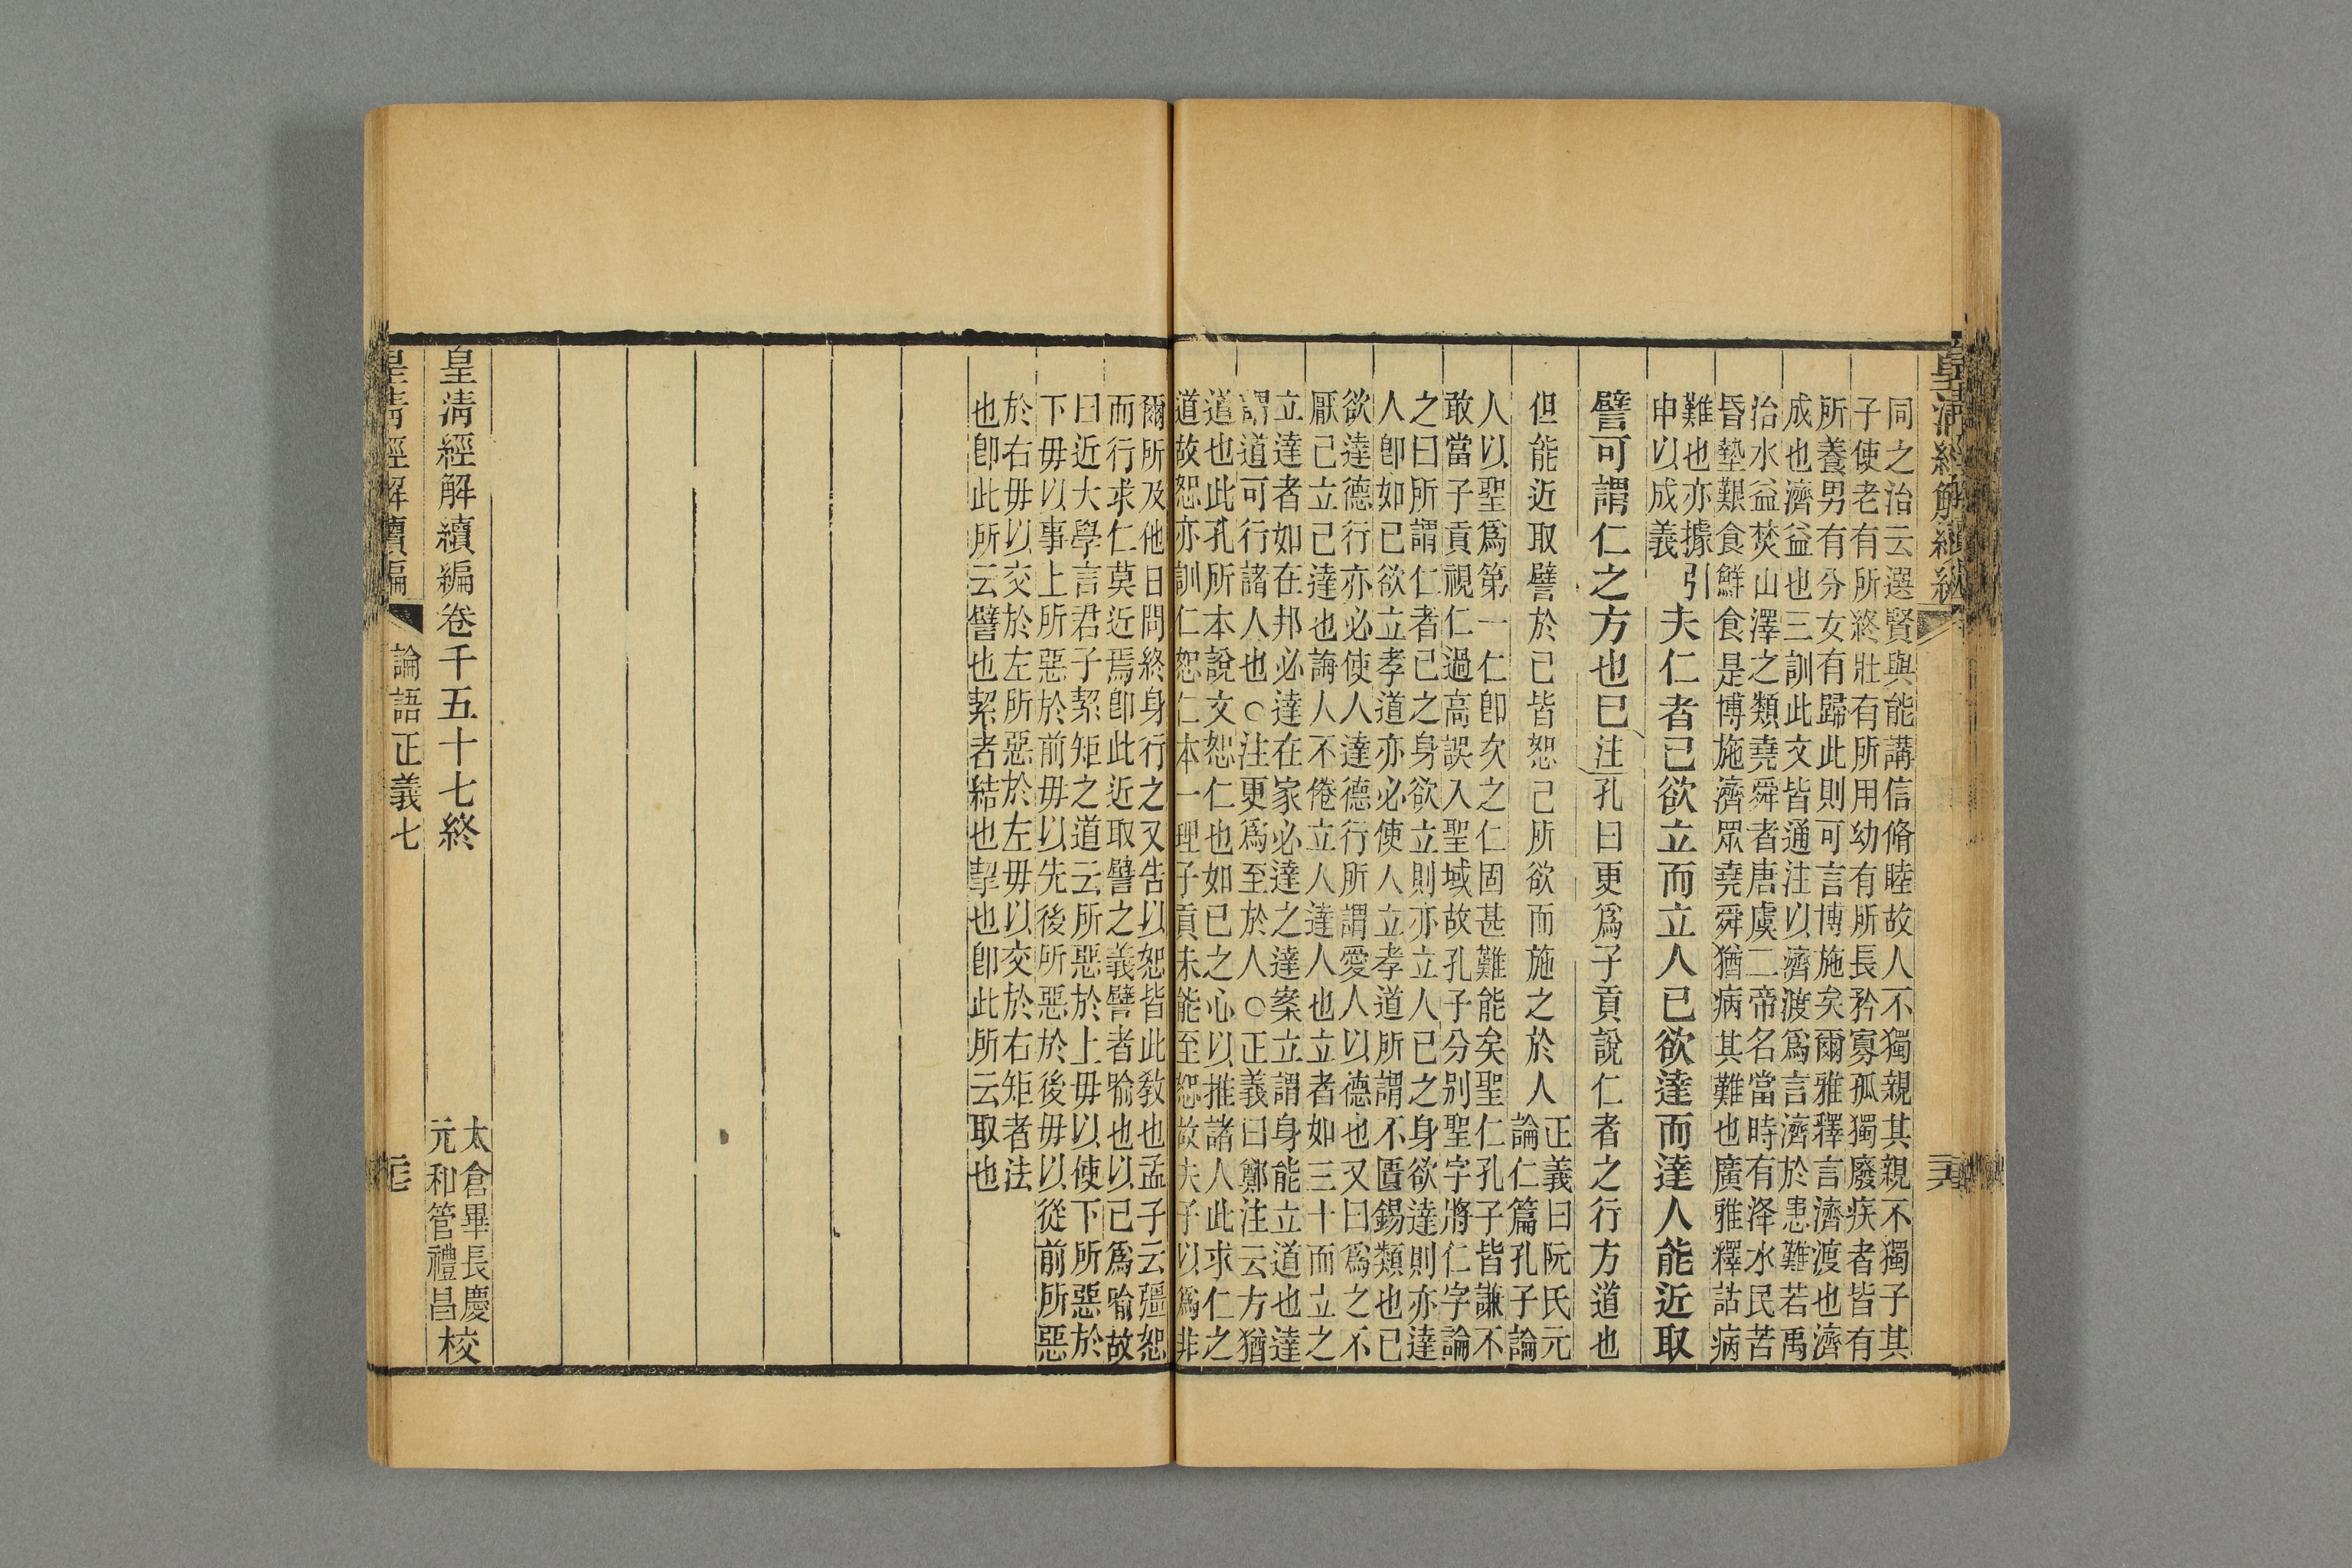 皇清經解續編
同之治云選賢與能講信脩睦故人不獨親其親不獨子其
子使老有所終壯有所用幼有所長矜寡孤獨廢疾者皆有
所養男有分女有歸此則可言博施矣爾雅釋言濟渡也濟
成也濟益也三訓此文皆通注以濟渡爲言濟於患難若禹
治水益焚山澤之類堯舜者唐虞二帝名當時有洚水民苦
昏墊艱食鮮食是博施濟眾堯舜猶病其難也廣雅釋詁病
難也亦據引
申以成義
夫仁者己欲立而立人己欲達而達人能近取
譬可謂仁之方也已注孔曰更爲子貢說仁者之行方道也
但能近取譬於己皆恕己所欲而施之於人
正義曰阮氏元
論仁篇孔子論
人以聖爲第一仁卽次之仁固甚難能矣聖仁孔子皆謙不
敢當子貢視仁過高誤入聖域故孔子分別聖字將仁字論
之曰所謂仁者己之身欲立則亦立人己之身欲達則亦達
人卽如己欲立孝道亦必使人立孝道所謂不匱錫類也己
欲達德行亦必使人達德行所謂愛人以德也又曰爲之不
厭己立己達也誨人不倦立人達人也立者如三十而立之
立達者如在邦必達在家必達之達案立謂身能立道也達
謂道可行諸人也○注更爲至於人○正義曰鄭注云方猶
道也此孔所本說文恕仁也如己之心以推諸人此求仁之
道故恕亦訓仁恕仁本一理子貢未能至恕故夫子以爲非
爾所及他日問終身行之又告以恕皆此教也孟子云彊恕
而行求仁莫近焉卽此近取譬之義譬者喻也以己爲喻故
曰近大學言君子絜矩之道云所惡於上毋以使下所惡於
下毋以事上所惡於前毋以先後所惡於後毋以從前所惡
於右毋以交於左所惡於左毋以交於右矩者法
也卽此所云譬也絜者結也挈也卽此所云取也
皇清經解續編卷千五十七終
太倉畢長慶
元和管禮昌
校
皇清經解續編
論語正義七